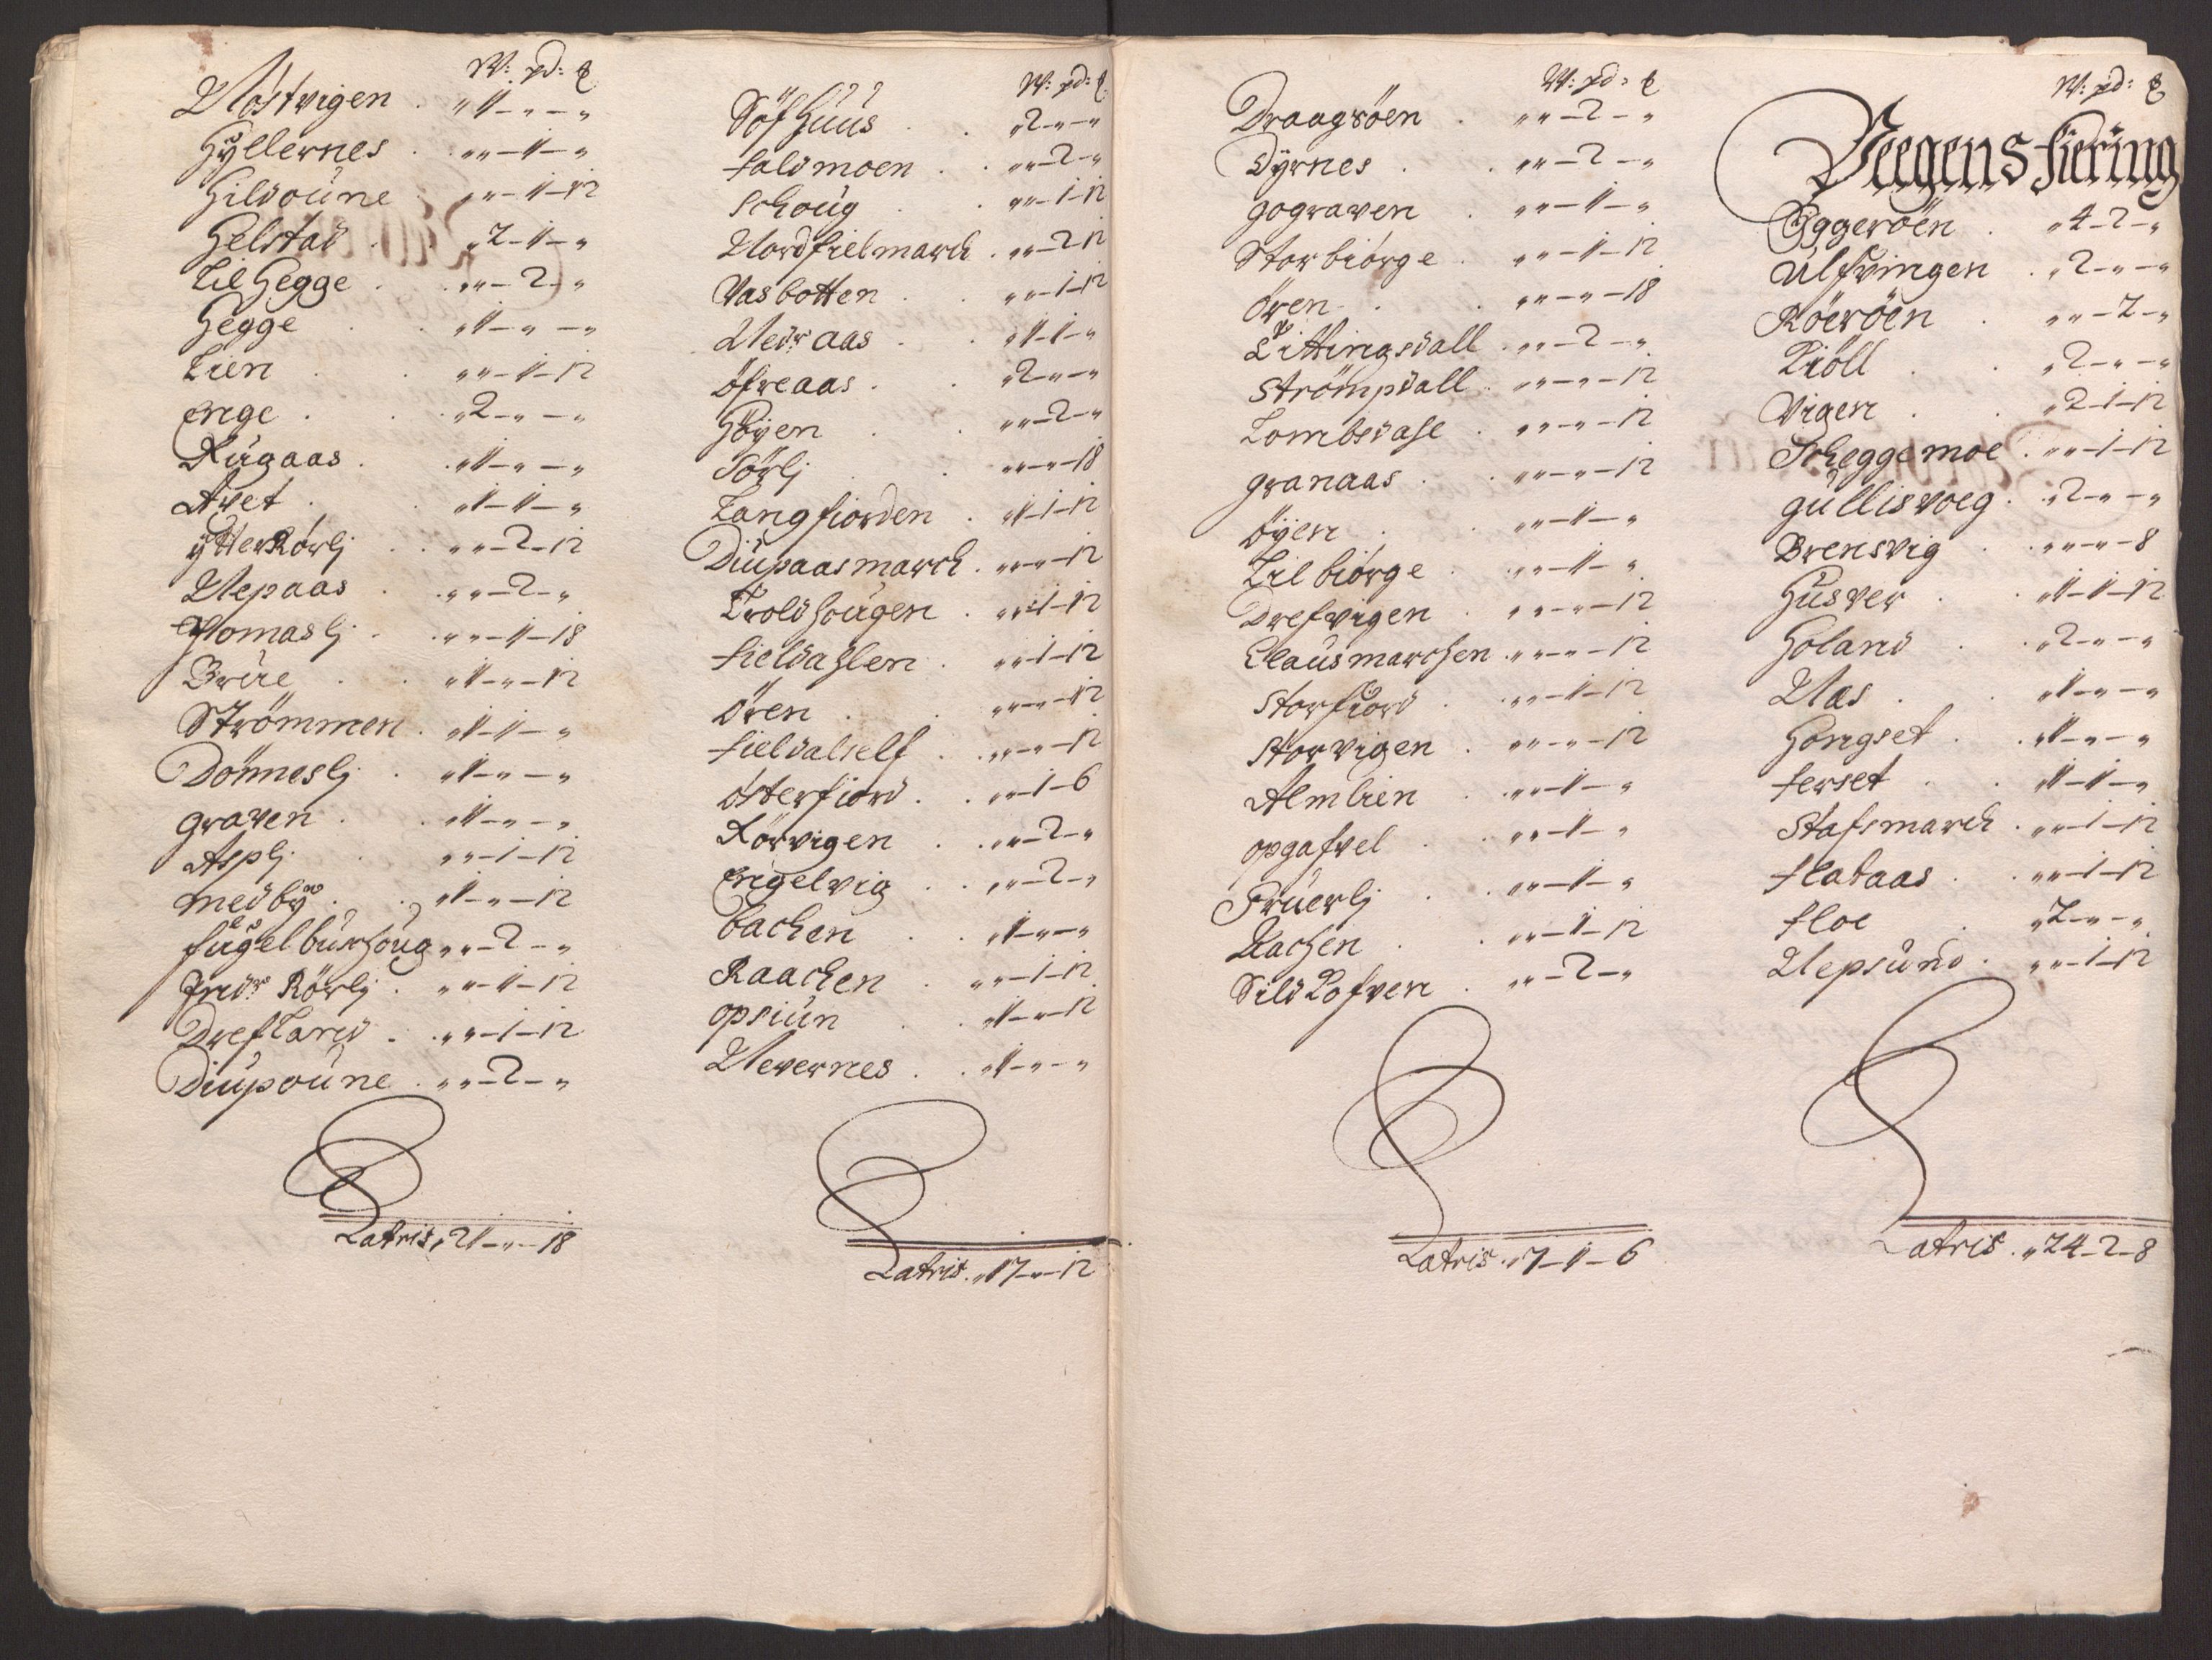 W: pd: ℔
Nöstvigen . „ 1 – „ – „
Hÿllernes . „ „ – 1 – „
Hildoune „ „ – 1 – 12
Helstad . „ 2 – 1 – „
Lil Hegge . „ „ – 2 – „
Hegge . „ 1 – „ – „
Lien . „ „ – 1 – 12
Enge . „ 2 – „ – „
Rugaas . „ 1 – „ – „
Aret . „ 1 – 1 – „
ÿtter Rörlj . „ „ – 2 – 12
Nepaas . „ „ – 2 – „
Thomaslj . „ „ – 1 – 18
Brue . „ 1 – „ – 12
Strömmen . „ 1 – 1 – „
Dönneslj . „ 1 – „ – „
graven . „ 1 – „ – „
Asplj . „ „ – 1 – 12
medbÿ . „ 1 – „ – 12
fugelburhoug „ „ – 2 – „
Indr Rörlj . „ „ – 1 – 12
Drefland . „ „ – 1 – 12
Diupoune . „ „ – 2 – „
Latris . 21 – „ – 18
W: pd: ℔
Söfhuus . „ 2 – „ – „
faldmoen . „ „ – 2 – „
Schoug . „ „ – 1 – 12
Nordfielmarch . „ „ – 2 12
Vasbotten . „ „ – 1 – 12
Nedr aas . „ 1 – 1 – „
öfreaas . „ 2 – „ – „
Höÿen . „ „ – 2 – „
Sörlj . „ „ – „ – 18
Langfiorden . „ 1 – 1 – 12
Diupaasmarch . „ „ – „ – 12
Troldhougen . „ „ – 1 – 12
fieldahlen . „ „ – 1 – 12
ören . „ „ – „ – 12
fieldalself . „ „ – „ – 12
österfiord . „ „ – 1 – 6
Rörvigen . „ „ – 2 – „
Engelvig . „ „ – 2 – „
bachen . „ 1 – „ – „
Raachen . „ „ – 1 – 12
opsiun . „ 1 – „ – 12
Nevernes . „ 1 – „ – „
Latris . „ 17 – „ – 12
W: pd: ℔
Draagsöen . „ „ – 2 – „
Dÿrnes . „ „ – 2 – „
gograven . „ „ – 1 – „
Storbiörge . „ „ – 1 – 12
ören . „ „ – „ – 18
Littingsdall . „ „ – 2 – „
Strömpdall . „ „ – „ – 12
Lombsdahl . „ „ – „ – 12
granaas . „ „ – „ – 12
öÿen . „ „ – 1 – „
Lilbiörge . „ „ – 1 – „
Drefvigen . „ „ – „ – 12
Clausmarchen . „ „ – „ – 12
Storfiord . „ „ – 1 – 12
Storvigen . „ „ – „ – 12
Almlien . „ „ – 1 – „
opgafvel . „ „ – 1 – „
Fruerlj . „ „ – 1 – „
Kachen . „ „ – 1 – 12
Sild Lofven . „ „ – 2 – „
Latris . „ 7 – 1 – 6
W: pd: ℔
Veegens fiering
Eggeröen . „ 4 – 2 – „
Ulfvingen . „ 2 – „ – „
Röeröen . „ „ – 2 – „
Tiöll . „ 2 – „ – „
Vigen . „ 2 – 1 – 12
Scheggemoe . „ „ – 1 – 12
gullisvoeg . „ 2 – „ – „
Brensvig . „ „ – „ – 8
Husver . „ 1 – 1 – 12
Holand . „ 2 – „ – „
Nas . „ 1 – „ – „
Hongset . „ 1 – „ – „
ferset . „ 1 – 1 – „
Stafsmarch . „ „ – 1 – 12
flataas . „ „ – 1 – 12
floe . „ 2 – „ – „
Nepsund . „ „ – 1 – 12
Latris . „ 24 – 2 – 8